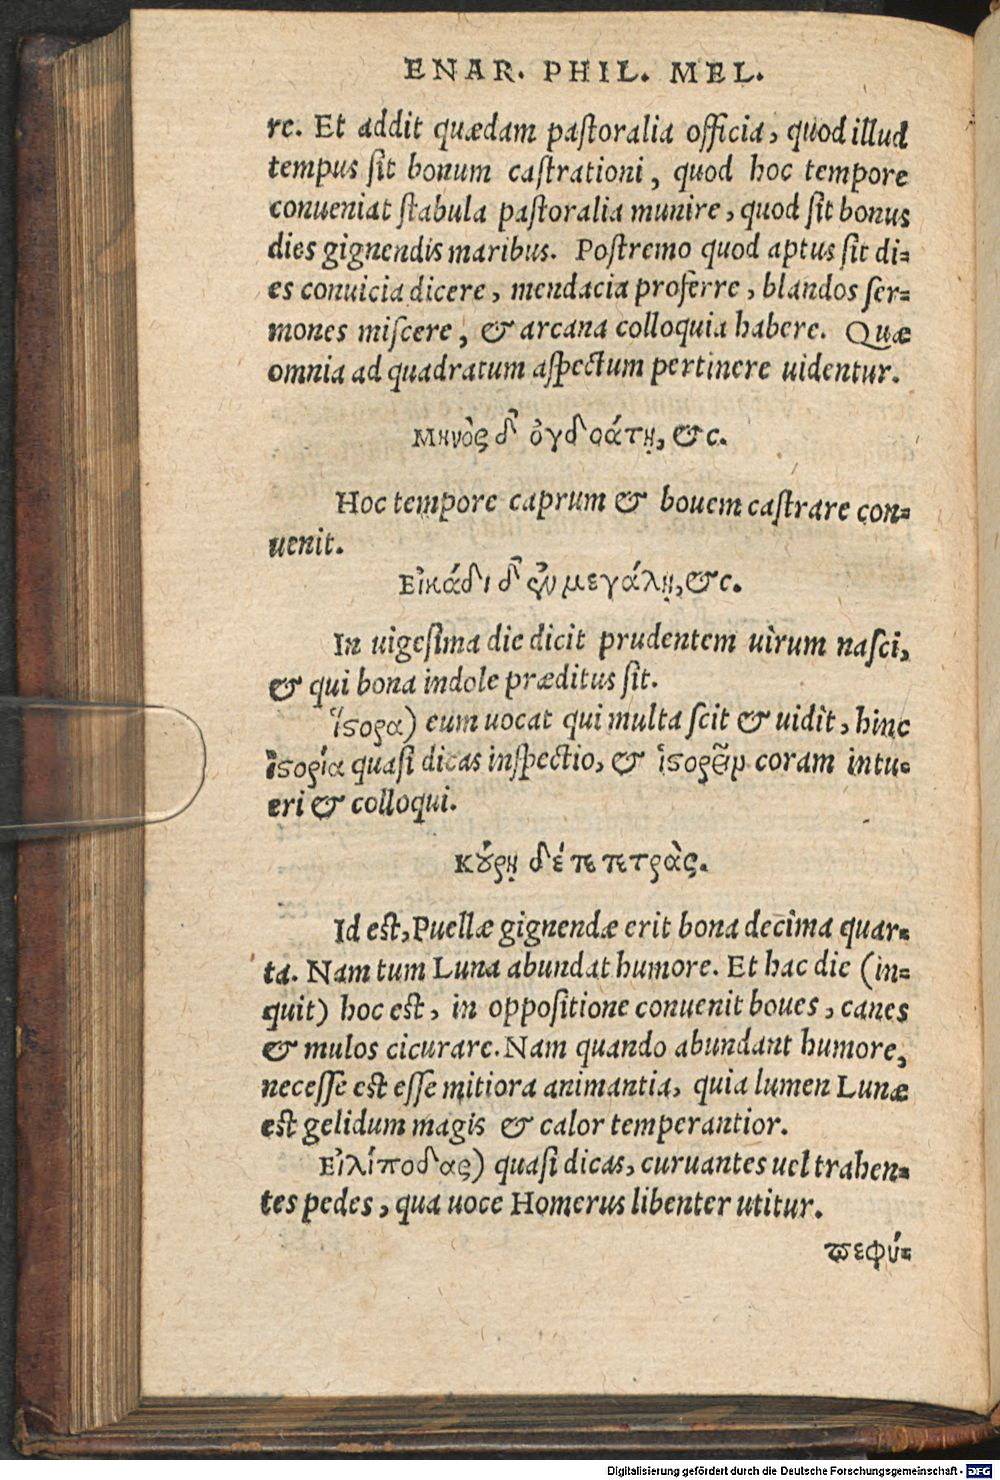 ENAR. PHIL. MEL.
re. Et addit quædam paſtoralia officia, quod illud
tempus ſit bonum caſtrationi, quod hoc tempore
conueniat ſtabula paſtoralia munire, quod ſit bonus
dies gignendis maribus. Poſtremo quod aptus ſit di=
es conuicia dicere, mendacia proferre, blandos ſer=
mones miſcere, & arcana colloquia habere. Quæ
omnia ad quadratum aſpectum pertinere uidentur.
Μηνὸς δ᾽ ὀγδοάτῃ, &c.
Hoc tempore caprum & bouem caſtrare con=
uenit.
Εἰκάδι δ᾽ ἐν μεγάλῃ, &c.
In uigeſima die dicit prudentem uirum naſci,
& qui bona indole præditus ſit.
Ἵϛορα) eum uocat qui multa ſcit & uidit, hinc
ἱϛορία quaſi dicas inſpectio, & ἱϛορεῖν coram intu=
eri & colloqui.
Κούρῃ δέ τε τετρὰς.
Id eſt, Puellæ gignendæ erit bona decima quar=
ta. Nam tum Luna abundat humore. Et hac die (in=
quit) hoc eſt, in oppoſitione conuenit boues, canes
& mulos cicurare. Nam quando abundant humore,
neceſſe eſt eſſe mitiora animantia, quia lumen Lunæ
eſt gelidum magis & calor temperantior.
Εἰλίποδας) quaſi dicas, curuantes uel trahen=
tes pedes, qua uoce Homerus libenter utitur.
πεφύ=
Digitalisierung gefördert durch die Deutsche Forschungsgemeinschaft - DFG